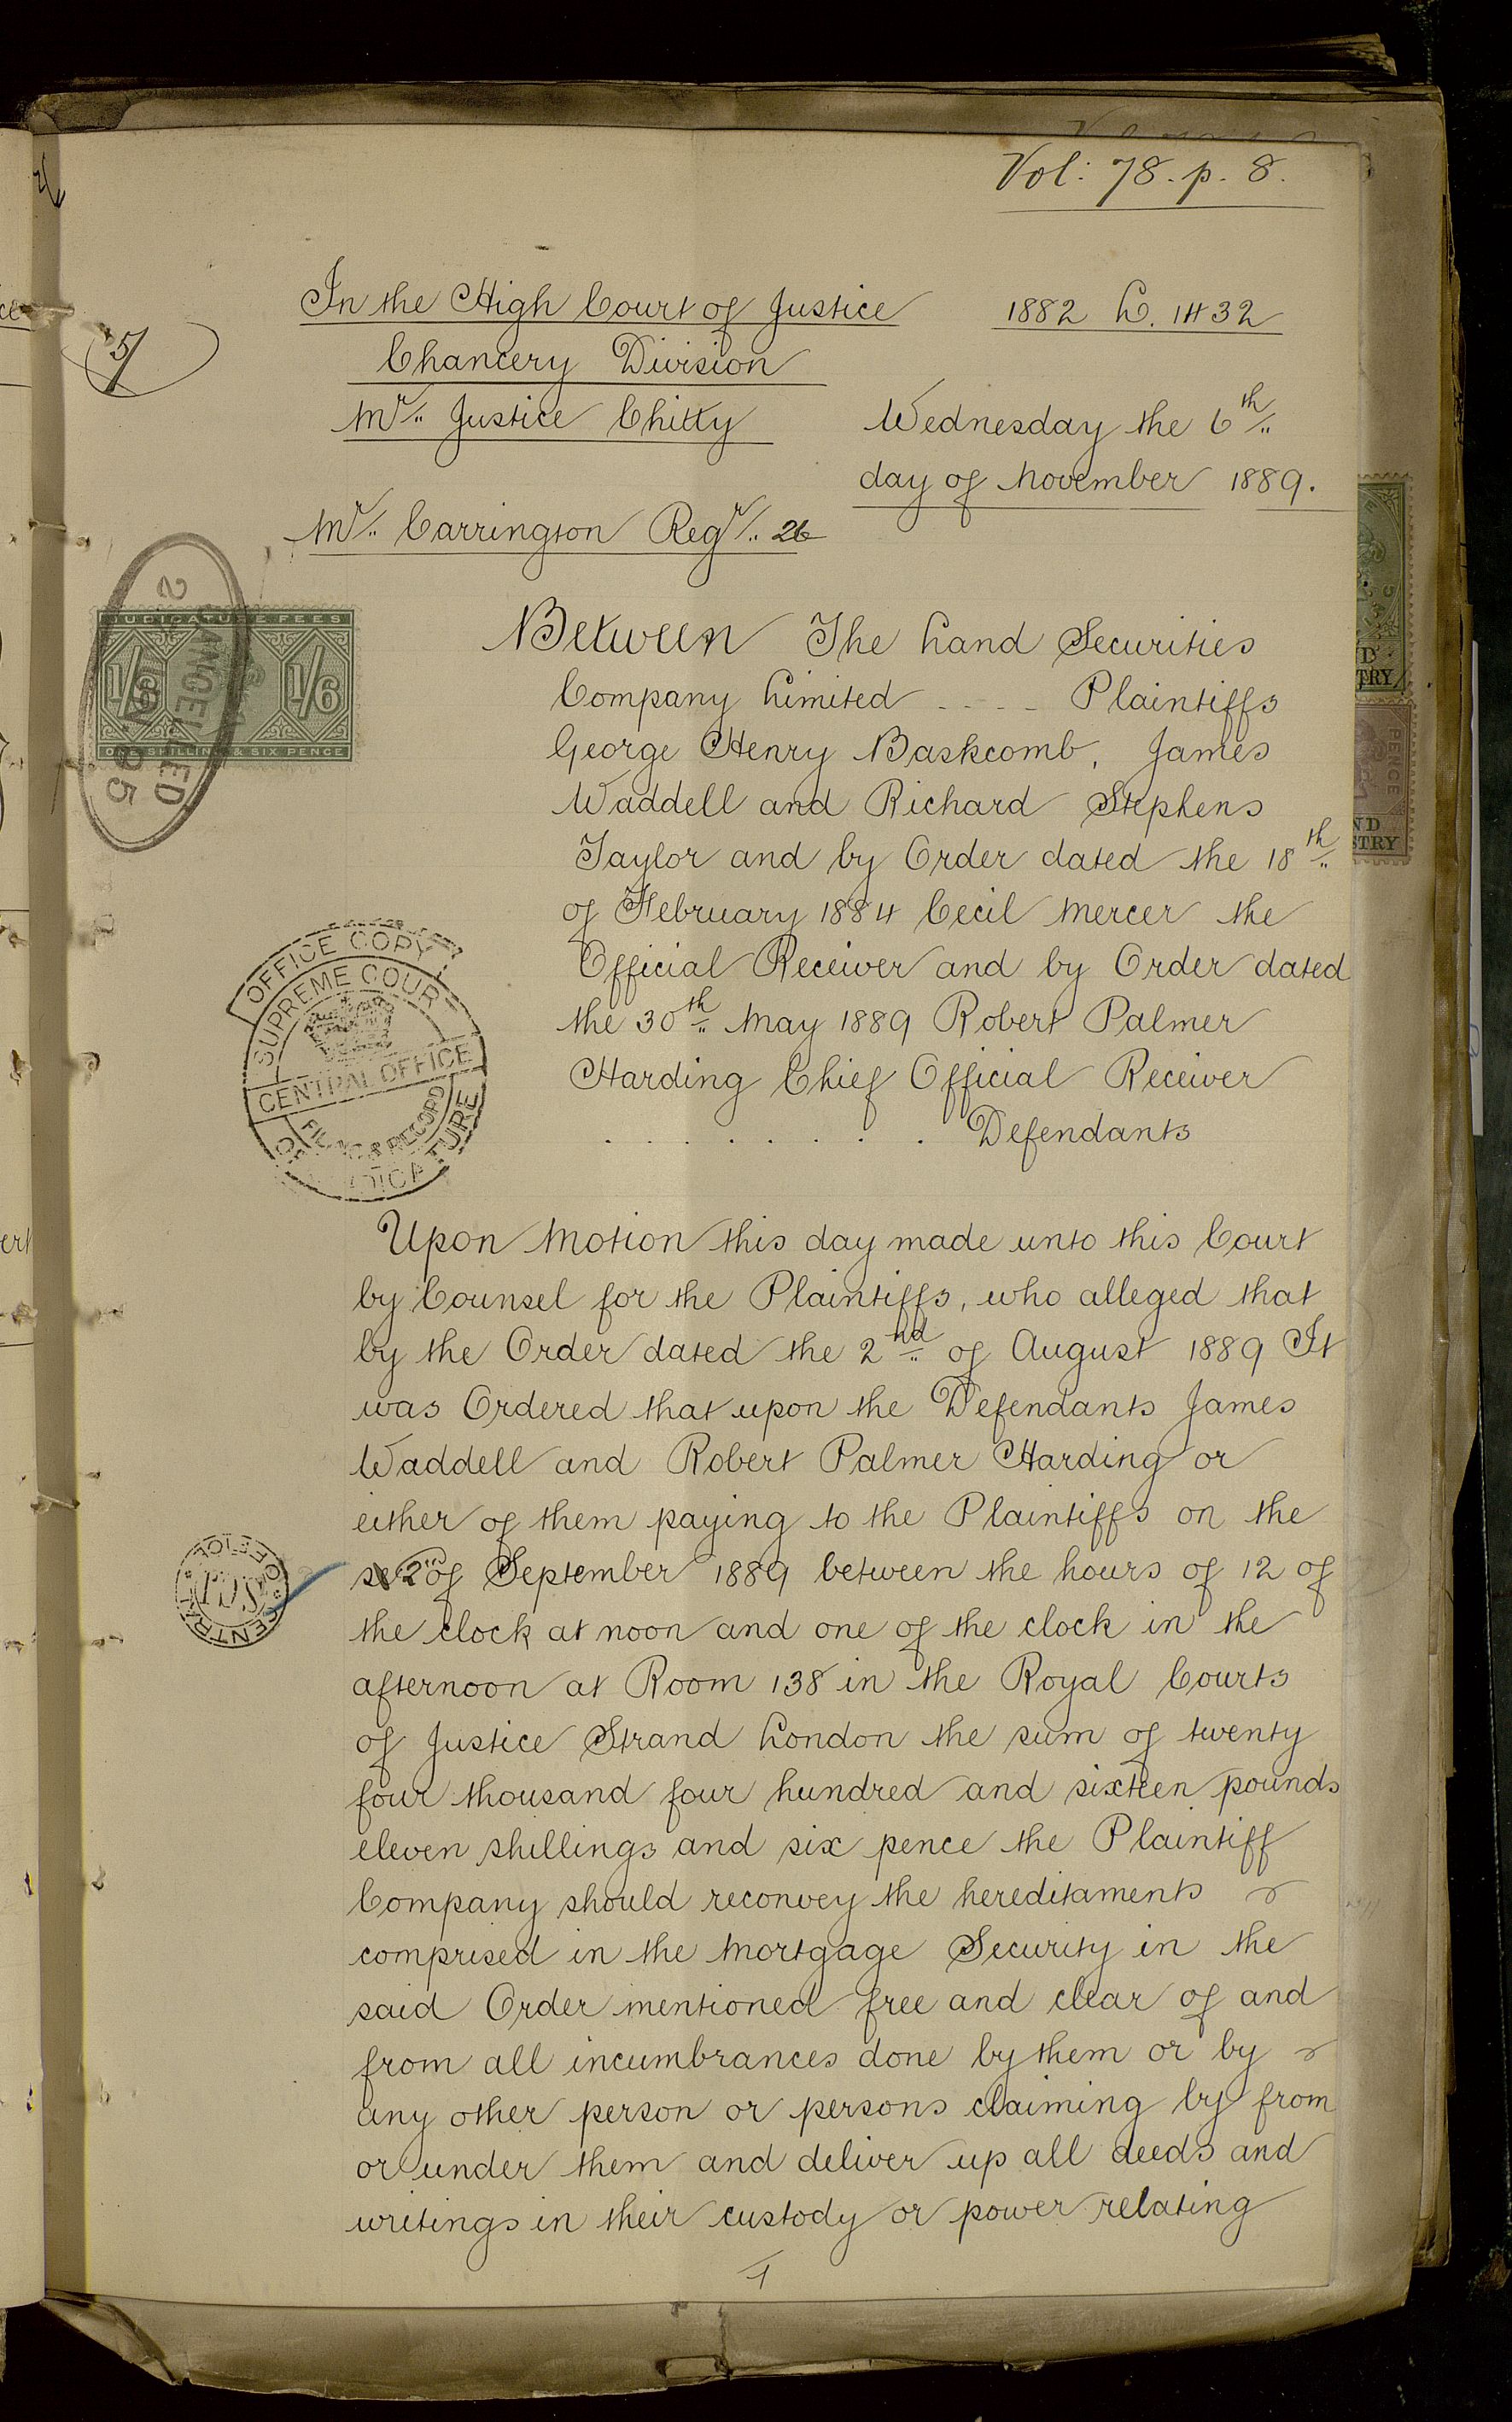 Vol: 78. p. 8.
5
In the High Court of Justice
1882 L. 1432
Chancery Division
Mr. Justice Chitty
Wednesday the 6th
day of November 1889.
Mr. Carrington Regr. 26
JUDICATURE FEES
1/6 1/6
ONE SHILLING & SIX PENCE
CANCELLED
95
Between The Land Securities
Company Limited - - - - Plaintiffs
George Henry Baskcomb, James
Waddell and Richard Stephens
Taylor and by Order dated the 18th
of February 1884 Cecil Mercer the
Official Receiver and by Order dated
the 30th May 1889 Robert Palmer
Harding Chief Official Receiver
. . . . . . . . . Defendants
OFFICE COPY
SUPREME COURT
CENTRAL OFFICE
FILING & RECORD
OF JUDICATURE
Upon Motion this day made unto this Court
by Counsel for the Plaintiffs, who alleged that
by the Order dated the 2nd of August 1889 It
was Ordered that upon the Defendants James
Waddell and Robert Palmer Harding or
either of them paying to the Plaintiffs on the
2nd of September 1889 between the hours of 12 of
the clock at noon and one of the clock in the
afternoon at Room 138 in the Royal Courts
of Justice Strand London the sum of twenty
four thousand four hundred and sixteen pounds
eleven shillings and six pence the Plaintiff
Company should reconvey the hereditaments
comprised in the Mortgage Security in the
said Order mentioned free and clear of and
from all incumbrances done by them or by
any other person or persons claiming by from
or under them and deliver up all deeds and
writings in their custody or power relating
1
CENTRAL OFFICE
PENCE
TRY
ND
STRY